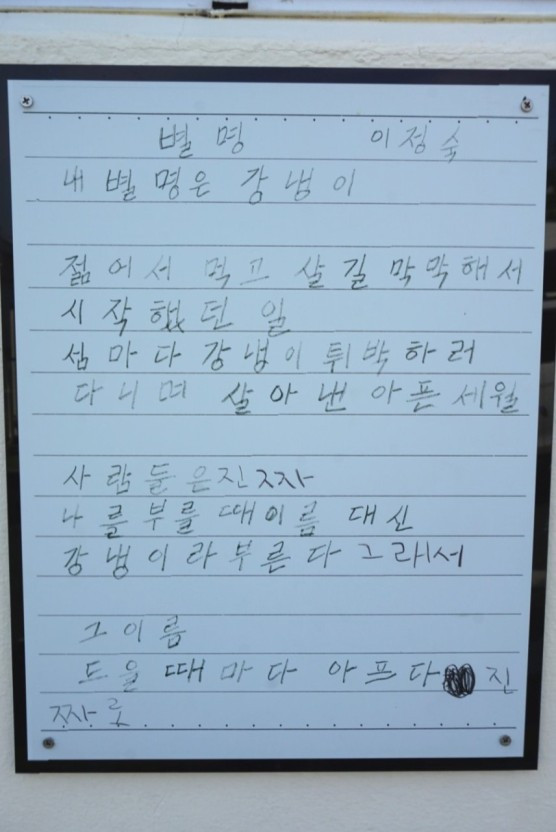 별명 이정숙
내 별명은 강냉이
젊어서 먹고 살길 막막해서
시작했던 일
섬마다 강냉이 튀박하러
다니며 살아낸 아픈 세월
사람들은진짜
나를부를때이름 대신
강냉이라부른다 그래서
그이름
드을때마다 아프다 진
짜로